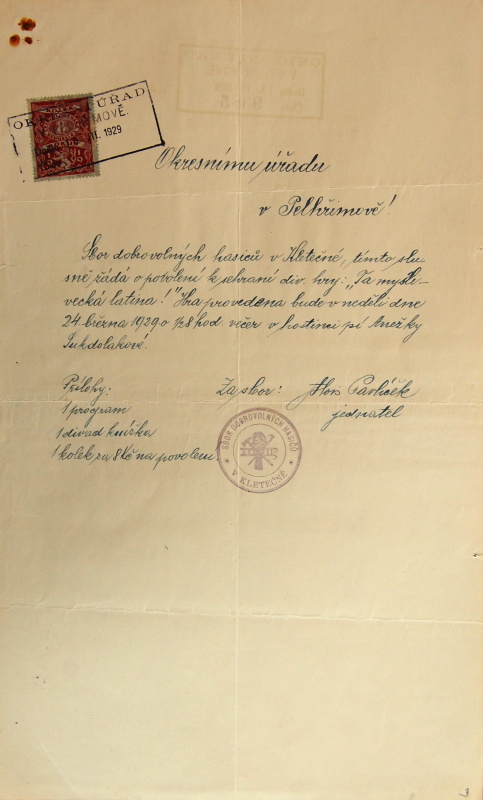 OKRESNÍ ÚŘAD
1929
Okresnímu úřadu
v Pelhřimově!
Sbor dobrovolných hasičů v Kletečné, tímto slu-
šně žádá o povolení k sehraní div. hry: „Ta mysli-
vecká latina!" Hra provedena bude v neděli dne
24. března 1929 o 1/28 hod. večer v hostinci pí Anežky
Sukdolákové.
Přílohy:
Za sbor: Alois Pavlíček
1 program
jednatel
1 divad. knížka
1 kolek za 8 Kč na povolení.
SBOR DOBROVOLNÝCH HASIČŮ
V KLETEČNÉ